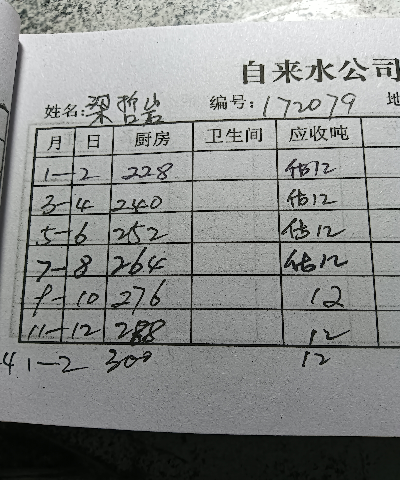 自来水公司
姓名: 梁哲岩 编号: 172079 地
月 日 厨房 卫生间 应收吨
1-2 228 估12
3-4 240 估12
5-6 252 估12
7-8 264 估12
9-10 276 12
11-12 288 12
4.1-2 300 12